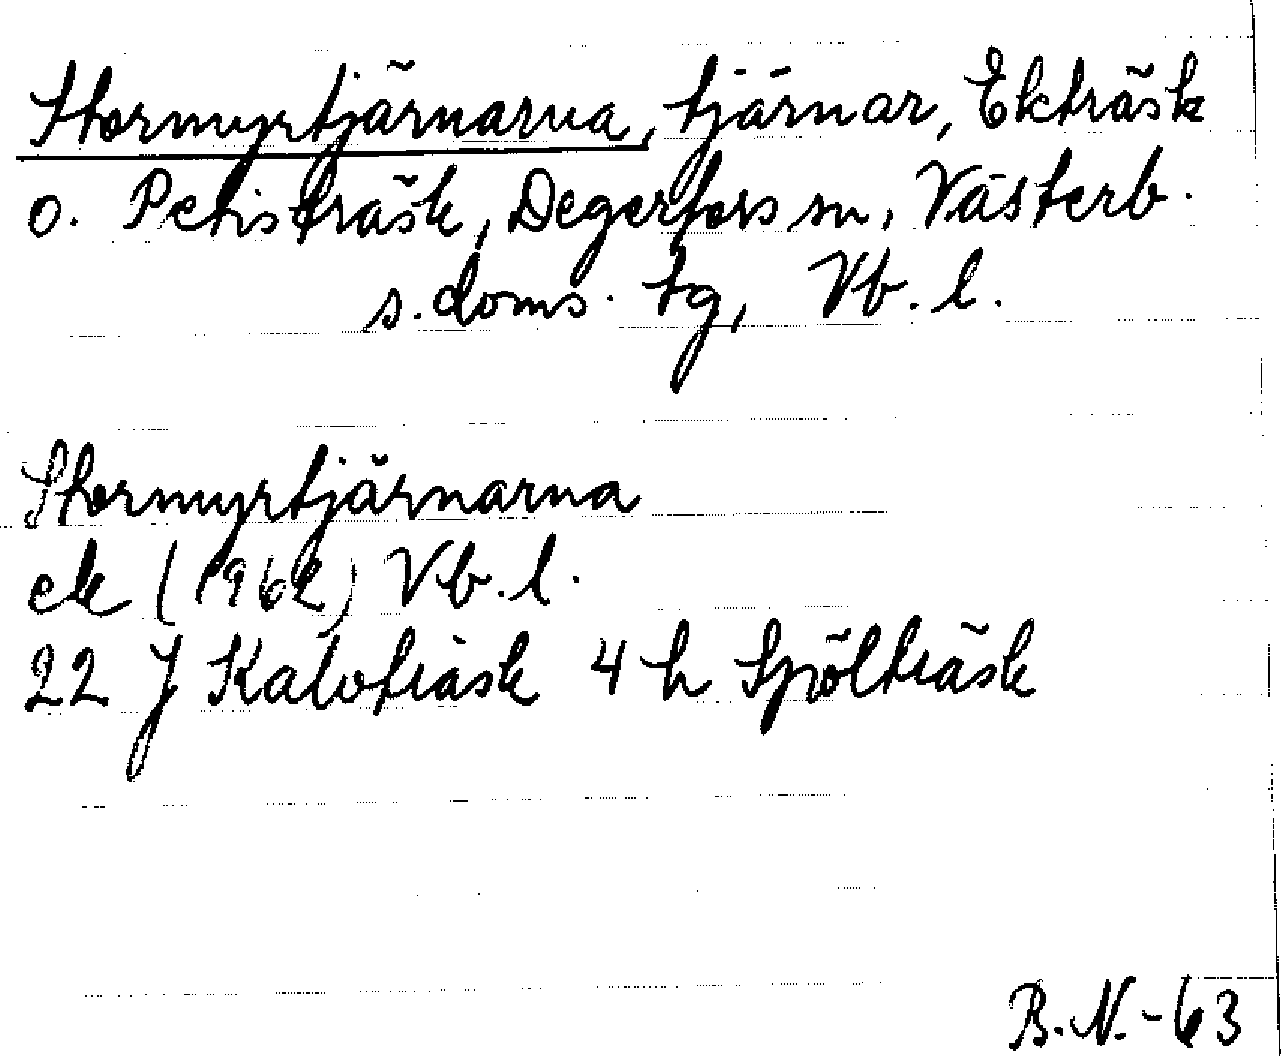 Stormyrtjärnarna, tjärnar, Ekträsk
o. Petisträsk, Degerfors sn, Västerb.
s. doms. tg, Vb. l.
Stormyrtjärnarna
ek (1962) Vb. l.
22 J Kalvträsk 4 h Spölträsk
B. N. - 63